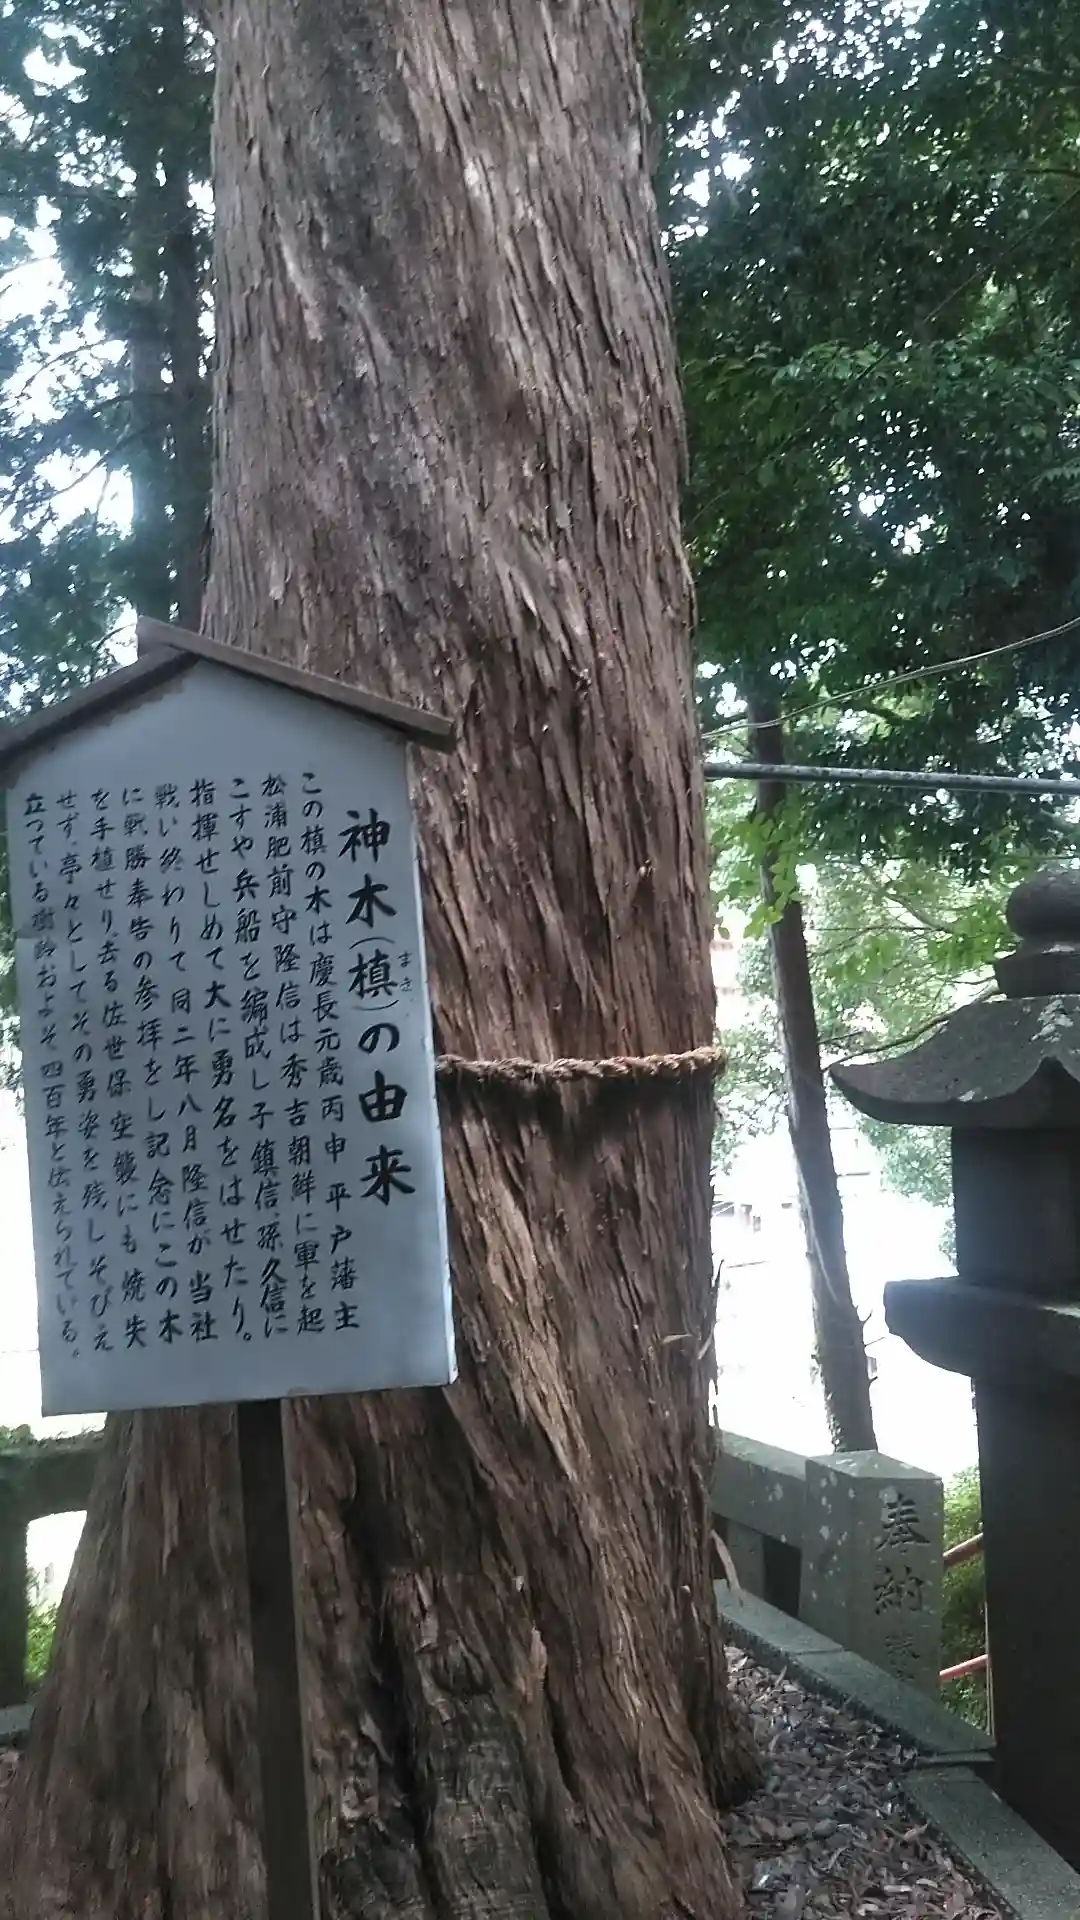 神木(槙)の由来
まき
この槙の木は慶長元歳丙申 平戸藩主
松浦肥前守隆信は秀吉朝鮮に軍を起
こすや兵船を編成し子鎮信、孫久信に
指揮せしめて大に勇名をはせたり。
戦い終わりて同二年八月隆信が当社
に戦勝奉告の参拝をし記念にこの木
を手植せり、去る佐世保空襲にも焼失
せず、亭々としてその勇姿を残しそびえ
立っている樹齢およそ四百年と伝えられている。
奉納